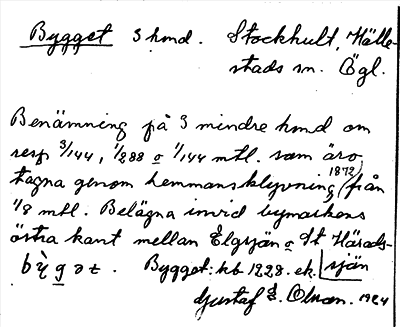 Bygget 3 hmd. Stockhult, Hälle-
stads sn. Ögl.
Benämning på 3 mindre hmd om
resp 3/144, 1/288 o 1/144 mtl. som äro
tagna genom hemmansklyvning 1872 från
1/8 mtl. Belägna invid bymarkens
östra kant mellan Elgsjön o St Härads-
sjön
bỳgət. Bygget kb 1228. ek.
Gustaf E. Olson. 1924